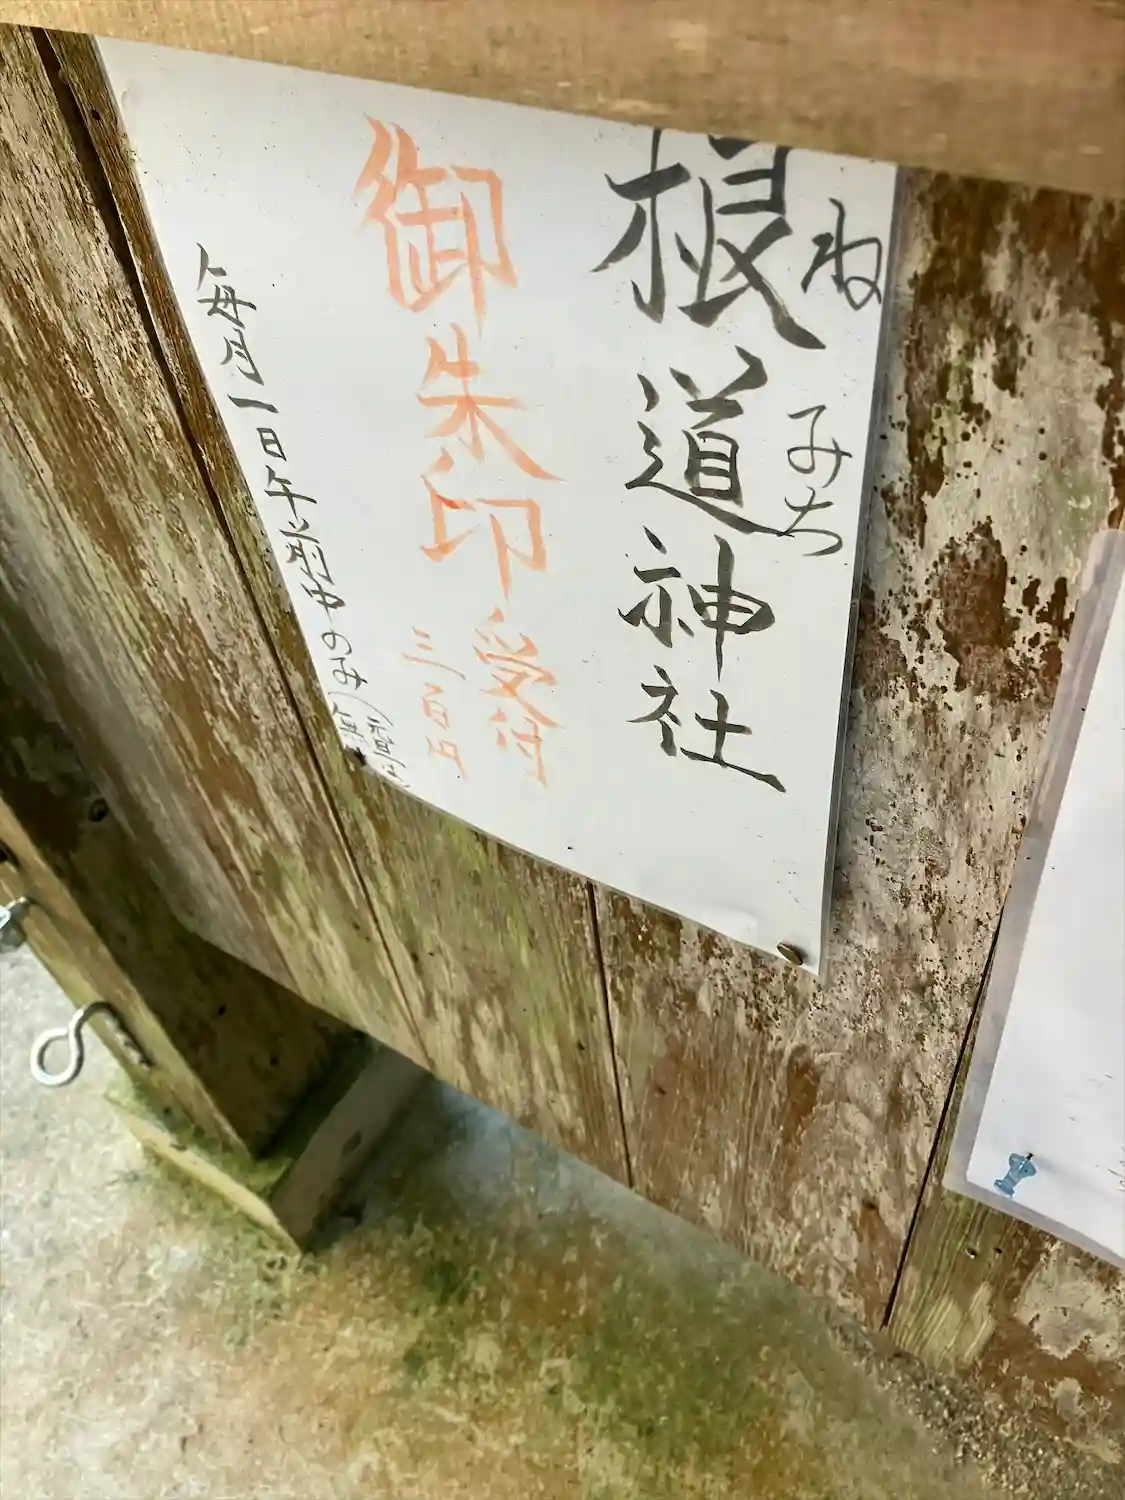 ね みち
根道神社
御朱印受付
三百円
毎月一日午前中のみ